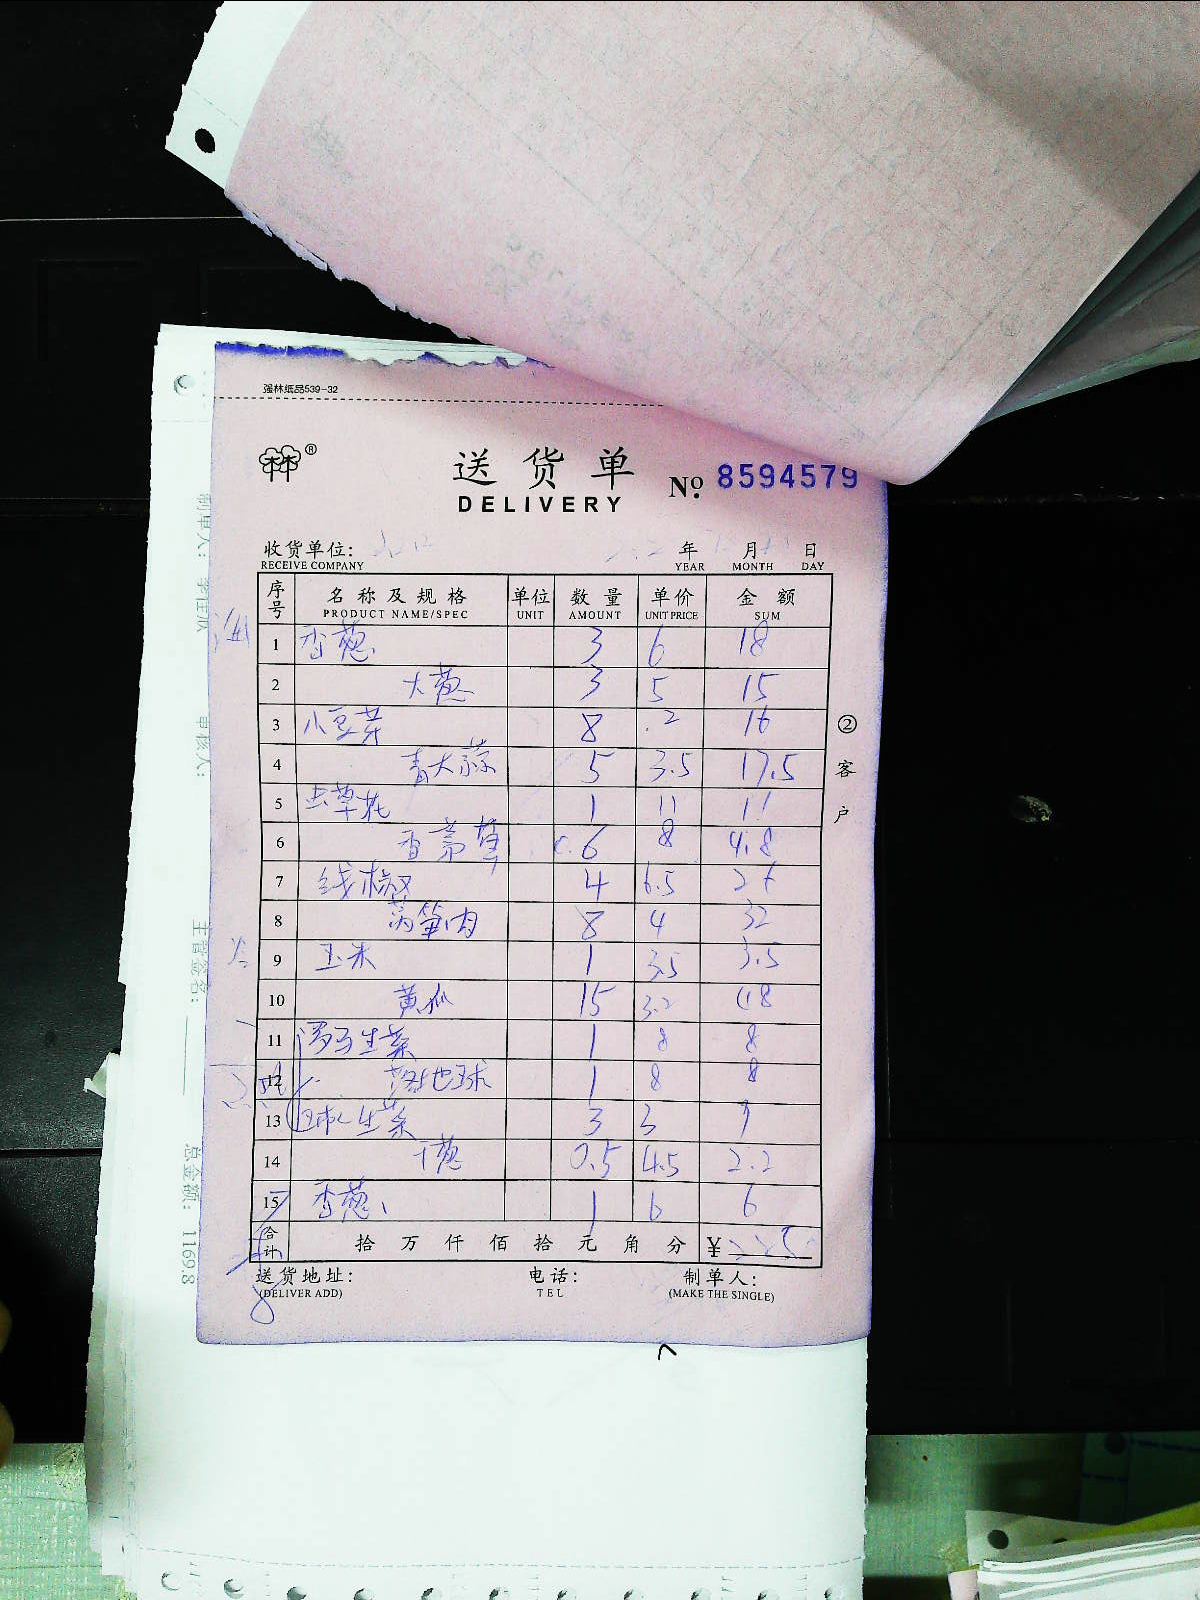 强林纸品539-32
林®
送货单
DELIVERY
No. 8594579
收货单位: 年 月 日
RECEIVE COMPANY YEAR MONTH DAY
序号 名称及规格 单位 数量 单价 金额
PRODUCT NAME/SPEC UNIT AMOUNT UNIT PRICE SUM
1 香葱 3 6 18
2 大葱 3 5 15
3 小豆芽 8 2 16
4 青大蒜 5 3.5 17.5
5 虫草花 1 11 11
6 香茅草 0.6 8 4.8
7 线椒 4 6.5 26
8 莴笋肉 8 4 32
9 玉米 1 3.5 3.5
10 黄瓜 15 3.2 48
11 罗马生菜 1 8 8
12 地球 1 8 8
13 球生菜 3 3 9
14 干葱 0.5 4.5 2.2
15 香葱 1 6 6
合计 拾 万 仟 佰 拾 元 角 分 ¥
送货地址: 电话: 制单人:
(DELIVER ADD) TEL (MAKE THE SINGLE)
②客户
制单人:
审核人:
主管签名:
总金额: 1169.8